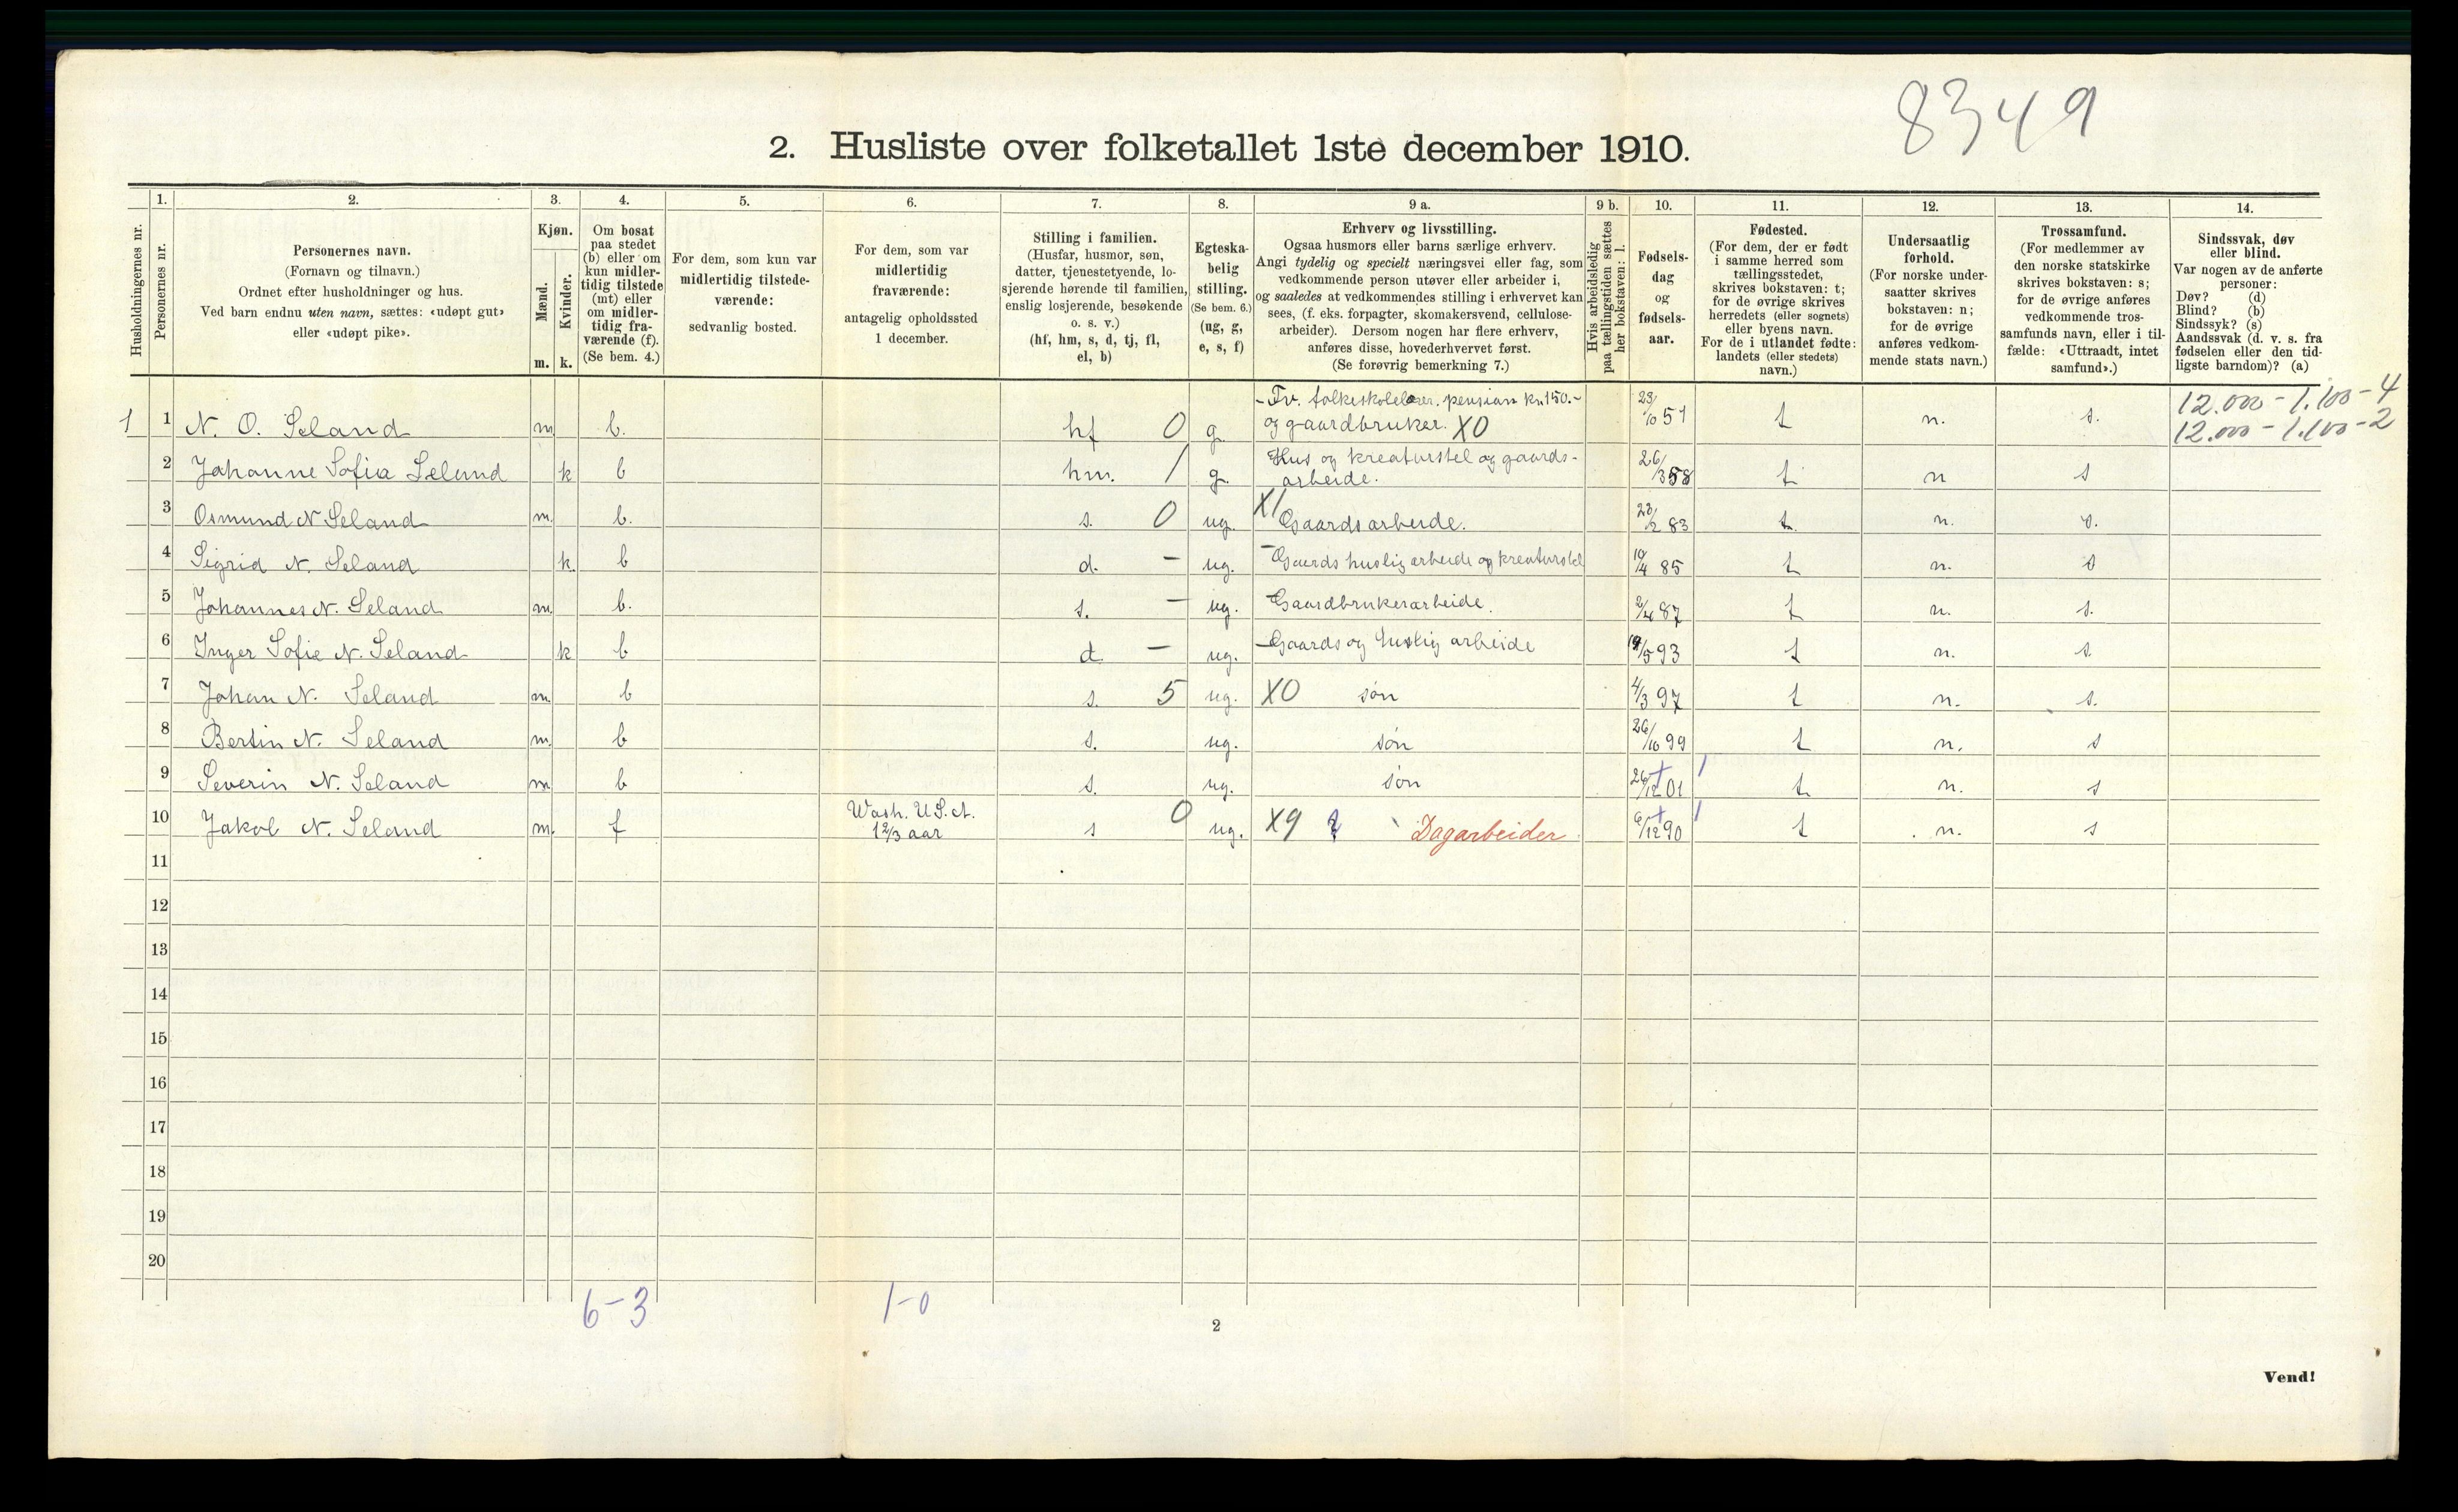 8349
2. Husliste over folketallet 1ste december 1910.
Husholdningernes nr.
1.
Personernes nr.
2.
Personernes navn.
(Fornavn og tilnavn.)
Ordnet efter husholdninger og hus.
Ved barn endnu uten navn, sættes: «udøpt gut»
eller «udøpt pike».
3.
Kjøn.
Mænd.
Kvinder.
m. k.
4.
Om bosat
paa stedet
(b) eller om
kun midler-
tidig tilstede
(mt) eller
om midler-
tidig fra-
værende (f).
(Se bem. 4.)
5.
For dem, som kun var
midlertidig tilstede-
værende:
sedvanlig bosted.
6.
For dem, som var
midlertidig
fraværende:
antagelig opholdssted
1 december.
7.
Stilling i familien.
(Husfar, husmor, søn,
datter, tjenestetyende, lo-
sjerende hørende til familien,
enslig losjerende, besøkende
o. s. v.)
(hf, hm, s, d, tj, fl,
el, b)
8.
Egteska-
belig
stilling.
(Se bem. 6.)
(ug, g,
e, s, f)
9 a.
Erhverv og livsstilling.
Ogsaa husmors eller barns særlige erhverv.
Angi tydelig og specielt næringsvei eller fag, som
vedkommende person utøver eller arbeider i,
og saaledes at vedkommendes stilling i erhvervet kan
sees, (f. eks. forpagter, skomakersvend, cellulose-
arbeider). Dersom nogen har flere erhverv,
anføres disse, hovederhvervet først.
(Se forøvrig bemerkning 7.)
9 b.
Hvis arbeidsledig
paa tællingstiden sættes
her bokstaven: l.
10.
Fødsels-
dag
og
fødsels-
aar.
11.
Fødested.
(For dem, der er født
i samme herred som
tællingsstedet,
skrives bokstaven: t;
for de øvrige skrives
herredets (eller sognets)
eller byens navn.
For de i utlandet fødte:
landets (eller stedets)
navn.)
12.
Undersaatlig
forhold.
(For norske under-
saatter skrives
bokstaven: n;
for de øvrige
anføres vedkom-
mende stats navn.)
13.
Trossamfund.
(For medlemmer av
den norske statskirke
skrives bokstaven: s;
for de øvrige anføres
vedkommende tros-
samfunds navn, eller i til-
fælde: «Uttraadt, intet
samfund».)
14.
Sindssvak, døv
eller blind.
Var nogen av de anførte
personer:
Døv? (d)
Blind? (b)
Sindssyk? (s)
Aandssvak (d. v. s. fra
fødselen eller den tid-
ligste barndom)? (a)
1 1 N. O. Seland m b. hf 0 g. - Fv. folkeskolelærer. pension kr. 150.- og gaardbruker. X0 23/10 51 t n. s. 12.000 - 1.100 - 4
12.000 - 1.100 - 2
2 Johanne Sofia Seland k b hm. 1 g. Hus og kreaturstel og gaards-
arbeide. 26/3 58 t n s
3 Osmund N Seland m. b. s. 0 ug. X1 Gaardsarbeide. 23/2 83 t. n. s.
4 Sigrid N. Seland k. b d. - ug. - Gaards huslig arbeide og kreaturstel 19/4 85 t n. s
5 Johannes N. Seland m. b. s. - ug. - Gaardbrukerarbeide. 2/4 87 t n. s.
6 Inger Sofie N. Seland k b d. - ug. - Gaards og huslig arbeide 19/5 93 t n. s.
7 Johan N. Seland m. b s. 5 ug. X0 søn 4/3 97 t n. s.
8 Bertin N. Seland m. b s. ug. søn 26/10 99 t n. s
9 Severin N. Seland m b s. ug. søn 26/12 01 t. n. s
10 Jakob N. Seland m. f Wash. U.S.A.
1 2/3 aar s 0 ug. X9 Dagarbeider 6/12 90 t n. s
11
12
13
14
15
16
17
18
19
20
6-3 1-0
2
Vend!